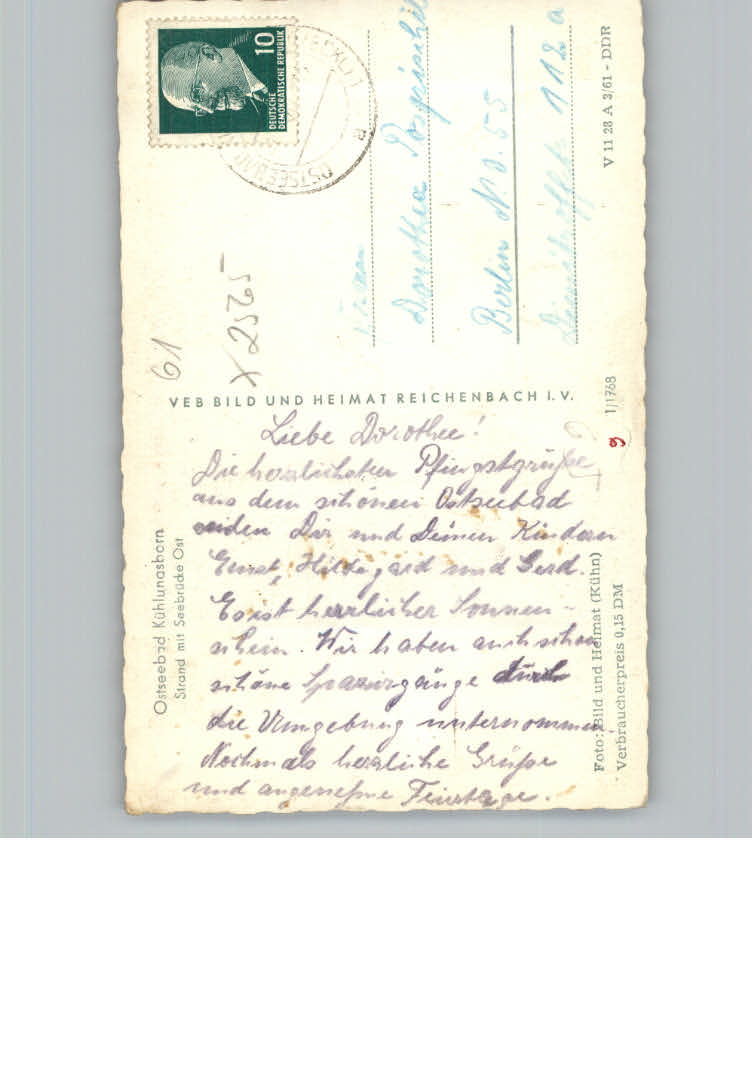 Ostseebad Kühlungsborn
Strand mit Seebrücke Ost
Liebe Dorothee!
Die herzlichsten Pfingstgrüße
aus dem schönen Ostseebad
senden Dir und Deinen Kindern
Ernst, Hildegard und Gerd.
Es ist herrlicher Sonnen-
schein. Wir haben auch schon
schöne Spaziergänge durch
die Umgebung unternommen.
Nochmals herzliche Grüße
und angenehme Feiertage.
Foto: Bild und Heimat (Kühn)
Verbraucherpreis 0,15 DM
VEB BILD UND HEIMAT REICHENBACH I. V.
1/1768
g
61
X 2565
10
DEUTSCHE
DEMOKRATISCHE REPUBLIK
OSTSEEBAD
Frau
Dorothea
Berlin N.O. 55
112 a
V 11 28 A 3/61 - DDR